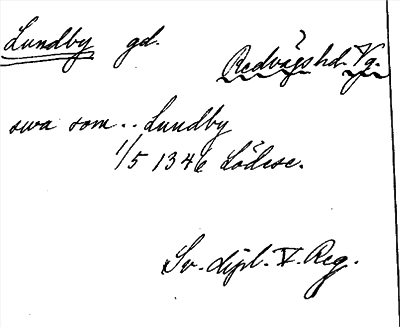 Lundby gd.
Redvägshd. Vg.
swa som .. Lundby
1/5 1346 Lödose.
Sv. dipl. V. Reg.